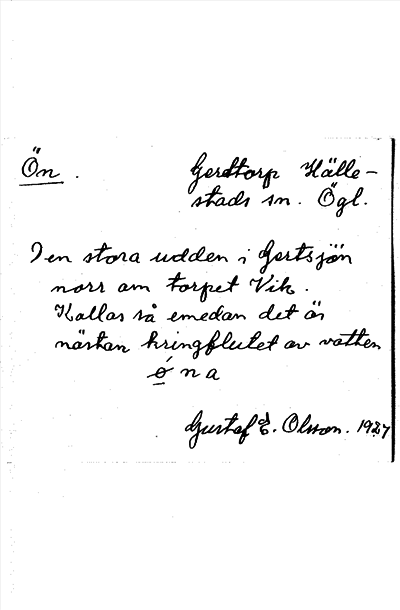 Ön.
Gerdtorp Hälle-
stads sn. Ögl.
Den stora udden i Gertsjön
norr om torpet Vik.
Kallas så emedan det är
nästan kringflutet av vatten
ǿ n a
Gustaf E. Olsson. 1927